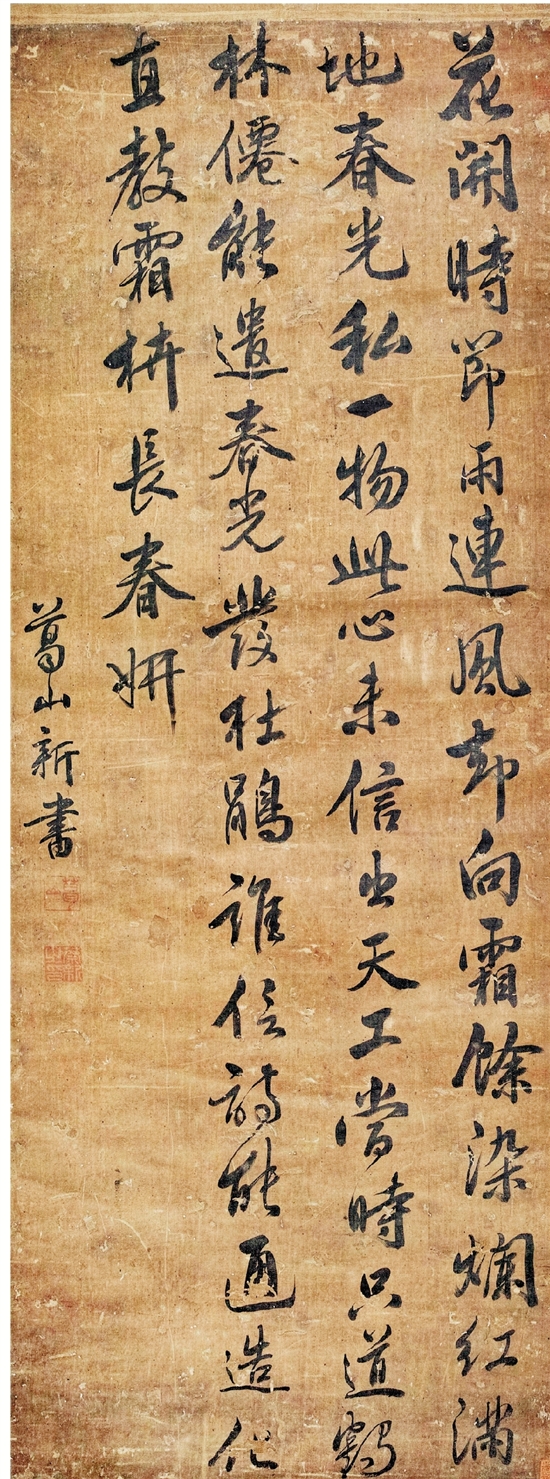 花開時節雨連風却向霜餘染爛紅滿
地春光私一物此心未信出天工當時只道鶴
林僊能遣春光發杜鵑誰信詩能迴造化
直教霜枿長春妍
葛山新書